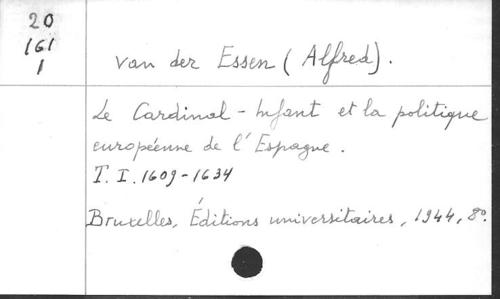 20
161
1
van der Essen (Alfred).
Le Cardinal-Infant et la politique
européenne de l'Espagne.
T. I. 1609-1634
Bruxelles, Éditions universitaires, 1944, 8º.